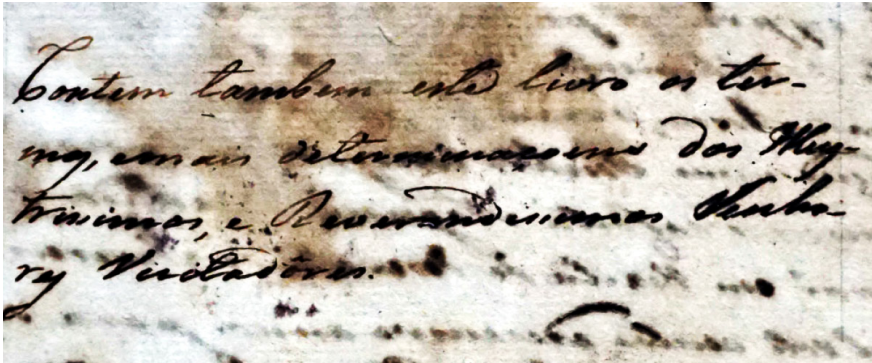 Contem tambem este livro os ter-
mos, e mais determinaçoens dos Illus-
trissimos, e Reverendissimos Senho-
res Visitadôres.